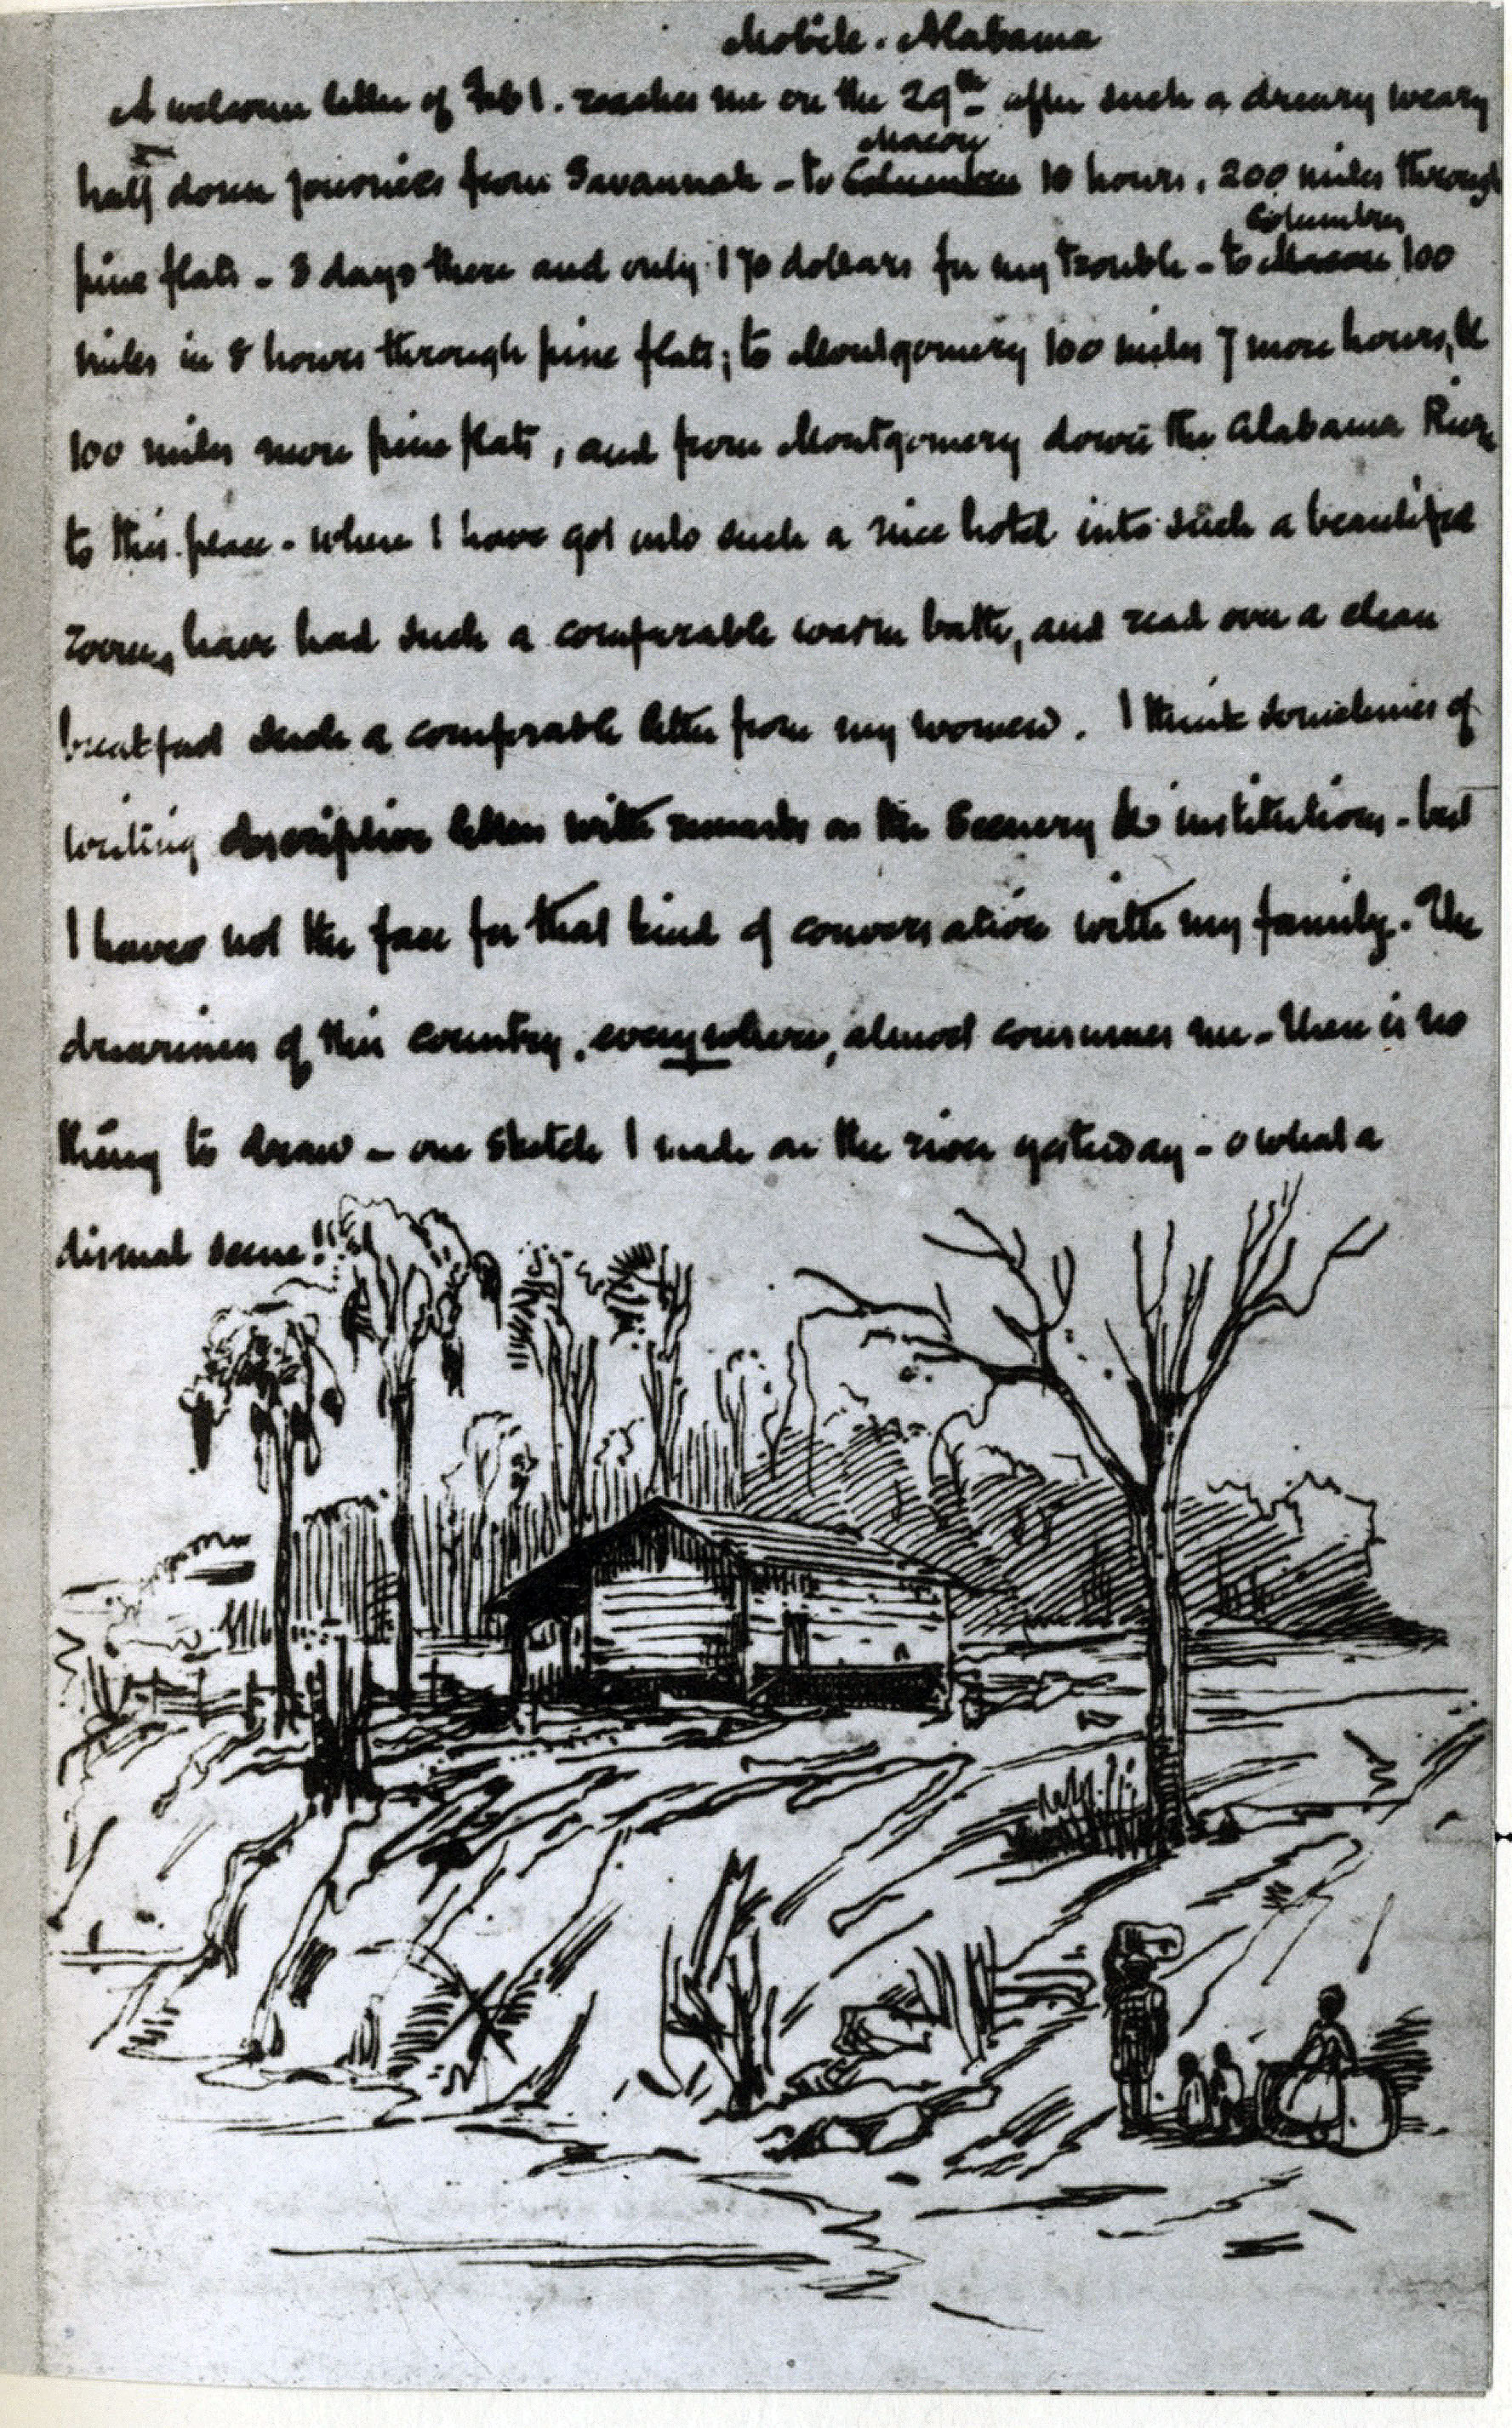 Mobile. Alabama
A welcome letter of Feb 1. reaches me on the 29th after such a dreary weary
half down journies from Savannah - to Columbus Macon 10 hours, 200 miles through
pine flats - 3 days there and only 170 dollars for my trouble - to Macon Columbus 100
miles in 8 hours through pine flats; to Montgomery 100 miles 7 more hours, &
100 miles more pine flats, and from Montgomery down the Alabama River
to this place - where I have got into such a nice hotel into such a beautiful
room, have had such a comforable warm bath, and read over a clean
breakfast such a comforable letter from my women. I think sometimes of
writing descriptive letters with remarks on the Scenery & institutions - but
I have not the face for that kind of conversation with my family. The
dreariness of this country, everywhere, almost consumes me - there is no
thing to draw - one sketch I made on the river yesterday - o what a
dismal scene!